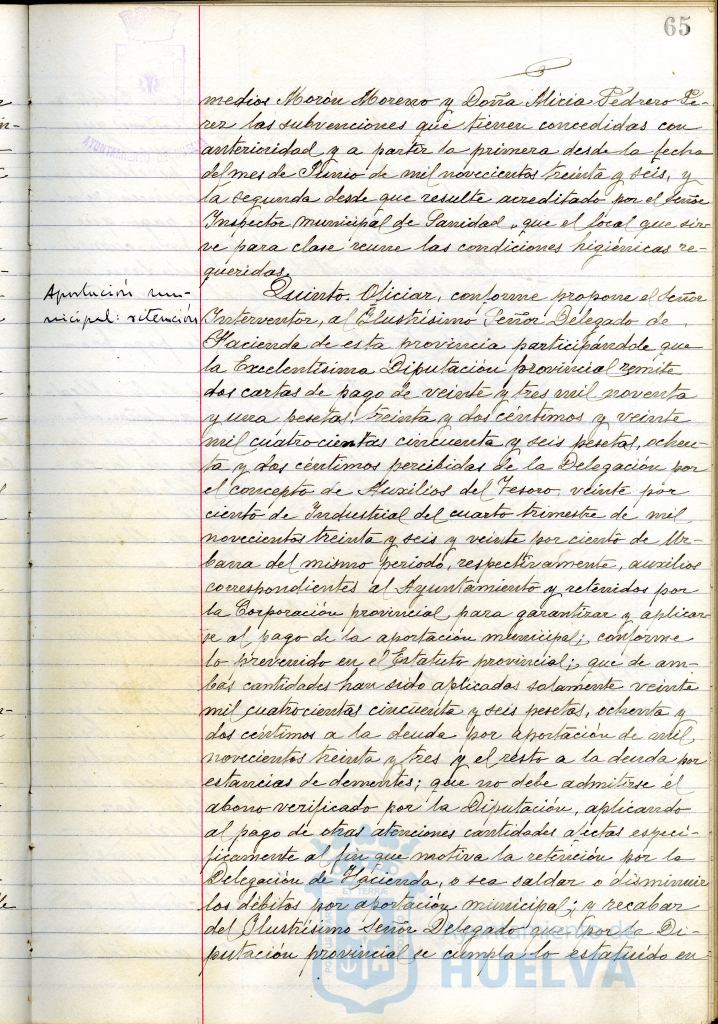 65
medios Morón Moreno y Doña Alicia Pedrero Pe-
rez las subvenciones que tienen concedidas con
anterioridad y a partir la primera desde la fecha
del mes de Junio de mil novecientos treinta y seis, y
la segunda desde que resulte acreditado por el Señor
Inspector municipal de Sanidad, que el local que sir-
ve para clase reune las condiciones higiénicas re-
queridas.
Aportación mu-
nicipal: retención
Quinto. Oficiar, conforme propone el Señor
Interventor, al Ilustrísimo Señor Delegado de
Hacienda de esta provincia participándole que
la Excelentísima Diputación provincial remite
dos cartas de pago de veinte y tres mil noventa
y una pesetas, treinta y dos céntimos y veinte
mil cuatrocientas cincuenta y seis pesetas, ochen-
ta y dos céntimos percibidas de la Delegación por
el concepto de Auxilios del Tesoro, veinte por
ciento de Industrial del cuarto trimestre de mil
novecientos treinta y seis y veinte por ciento de Ur-
bana del mismo periodo, respectivamente, auxilios
correspondientes al Ayuntamiento y retenidos por
la Corporación provincial para garantizar y aplicar-
se al pago de la aportación municipal; conforme
lo prevenido en el Estatuto provincial; que de am-
bas cantidades han sido aplicadas solamente veinte
mil cuatrocientas cincuenta y seis pesetas, ochenta y
dos céntimos a la deuda por aportación de mil
novecientos treinta y tres y el resto a la deuda por
estancias de dementes; que no debe admitirse el
abono verificado por la Diputación, aplicando
al pago de otras atenciones cantidades afectas especí-
ficamente al fin que motiva la retención por la
Delegación de Hacienda, o sea saldar o disminuir
los débitos por aportación municipal; y recabar
del Ilustrísimo Señor Delegado que por la Di-
putación provincial se cumpla lo estatuido en
Ayuntamiento de
HUELVA